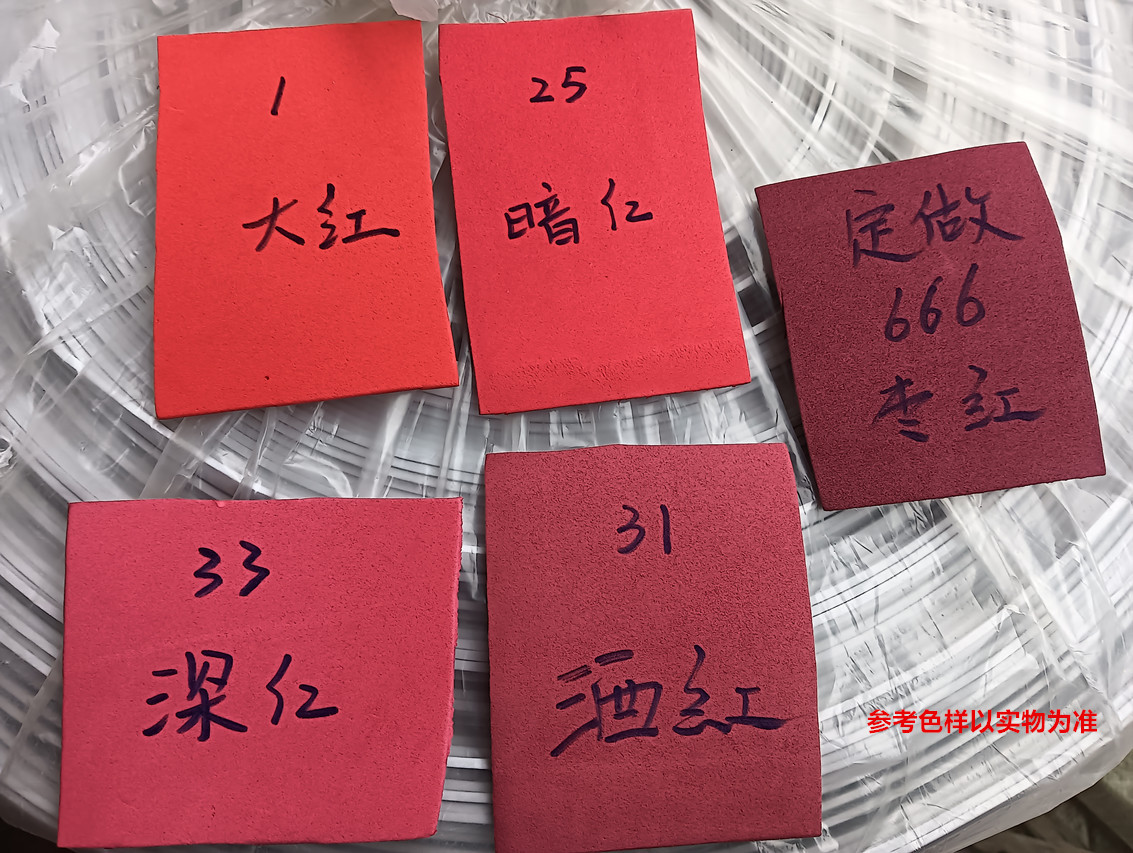 1
大红
25
暗仁
定做
666
枣红
33
深仁
31
酒红
参考色样以实物为准